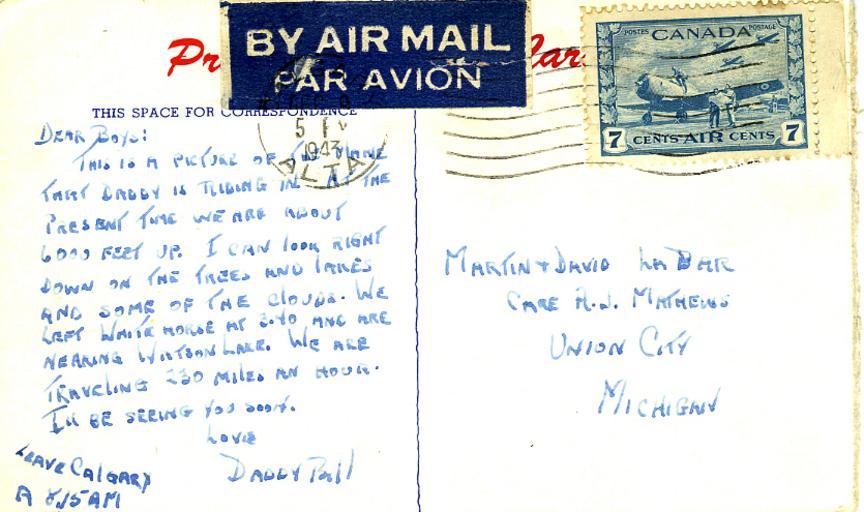 BY AIR MAIL
PAR AVION
POSTES CANADA POSTAGE
7 CENTS AIR CENTS 7
THIS SPACE FOR CORRESPONDENCE
5
1943
ALTA
DEAR BOYS:
THIS IS A PICTURE OF THE PLANE
THAT DADDY IS RIDING IN AT THE
PRESENT TIME WE ARE ABOUT
6000 FEET UP. I CAN LOOK RIGHT
DOWN ON THE TREES AND LAKES
AND SOME OF THE CLOUDS. WE
LEFT WHITE HORSE AT 3.40 AND ARE
NEARING WATSON LAKE. WE ARE
TRAVELING 230 MILES AN HOUR.
I'LL BE SEEING YOU SOON.
LOVE
DADDY
LEAVE CALGARY
A 8.15 AM
MARTIN + DAVID LA BAR
CARE A.J. MATHEWS
UNION CITY
MICHIGAN